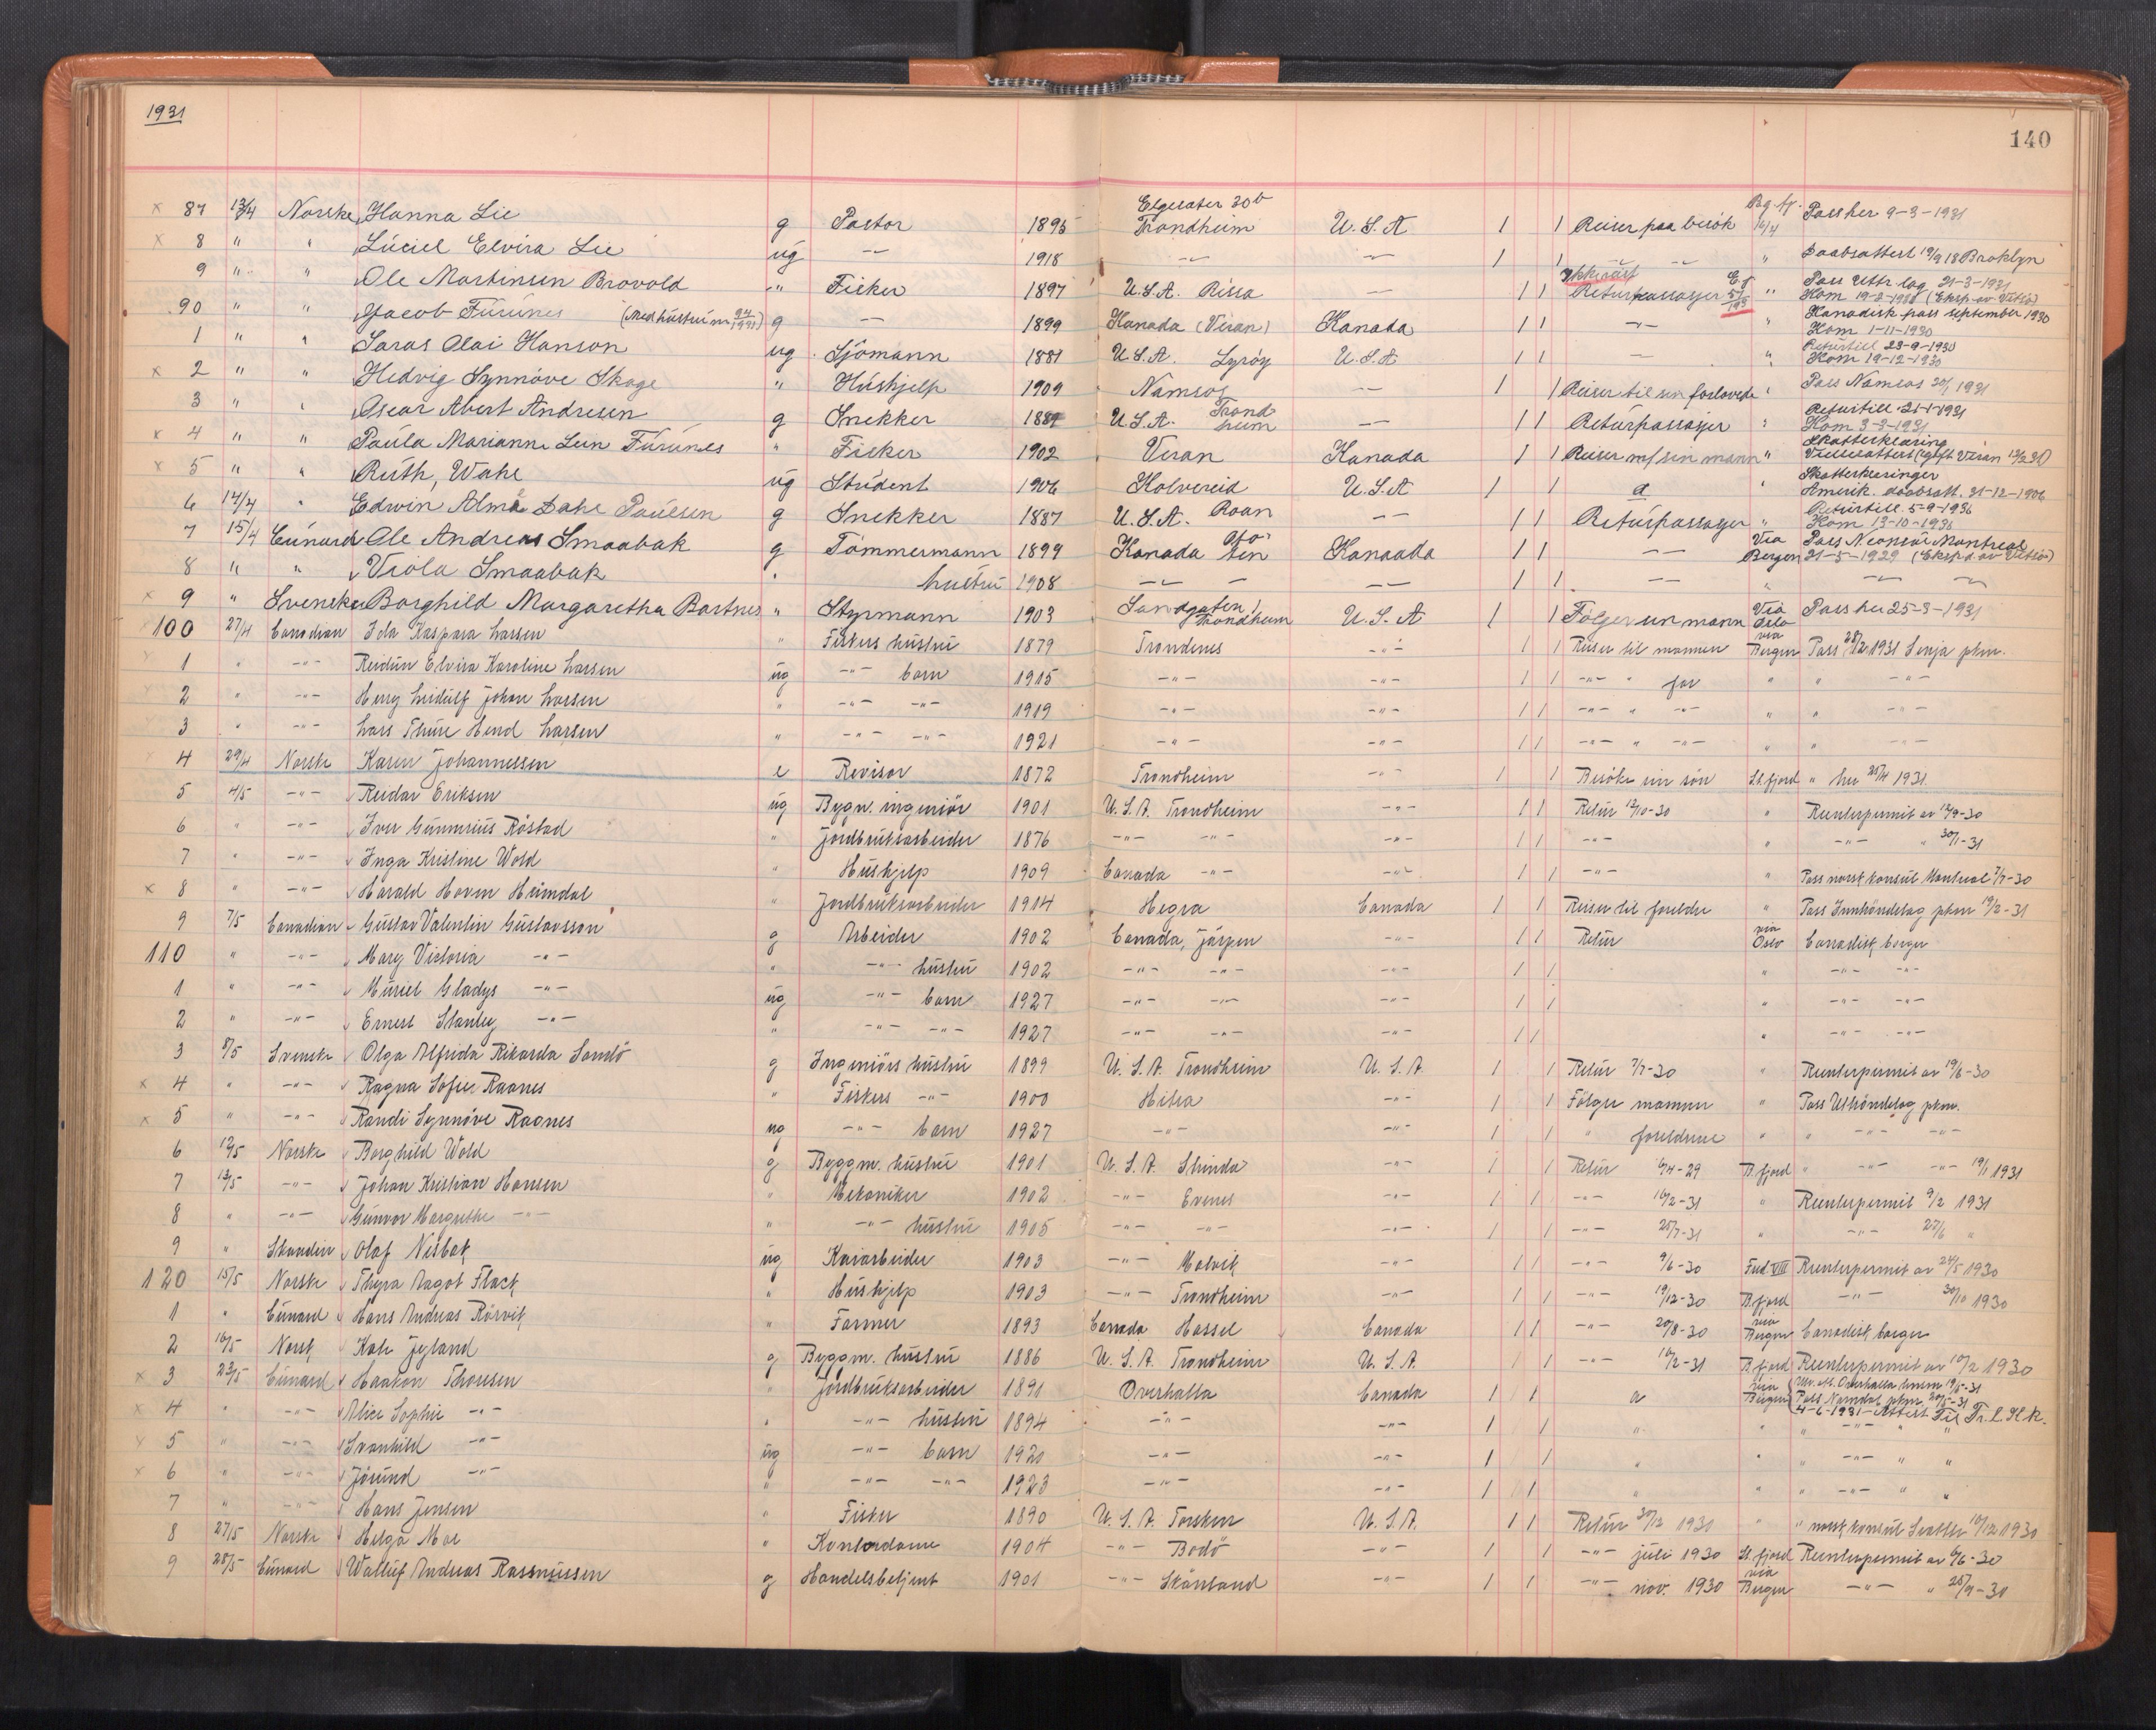 1931
140
x 87 13/4 Norske Hanna Lie g Pastor 1895 Elgesater 30b Trondheim U.S.A 1 1 Reiser paa besök 16/4 Pass her 9-3-1931
x 8 " " Luciel Elvira Lie ug -"- 1918 -"- -"- 1 1 -"- -"- " Daabsattest 19/9 18 Broklyn
9 " " Ole Martinsen Brovold " Fisker 1897 U.S.A. Rissa -"- 1 1 Returpassager " Pass Uttr lag 21-3-1931
90 " " Jacob Furunes (Med hustru nr 94/1931) g -"- 1899 Kanada (Veran) Kanada 1 1 -"- " Kanadisk pass september 1930 Kom 1-11-1930
1 " " Saras Olai Hanson ug Sjömann 1881 U.S.A. U.S.A 1 1 -"- " Returtill 23-9-1930 Kom 19-12-1930
x 2 " " Hedvig Synnöve Skage " Hushjelp 1909 Namsos -"- 1 1 Reiser til sin forlovede " Pass Namsos 1931
3 " " Oscar Abert Andresen g Snekker U.S.A. Trondheim -"- 1 1 Returpassasjer " Returtill 21-1-1931 Kom 3-3-1931
x 4 " " Paula Marianne Furunes " Fisker 1902 Veran Kanada 1 1 Reiser m/ sin mann " Skatterklæring Vielsesattest (gift Veran 12/2 31)
x 5 " " Ruth, Wahl ug Student 1906 Kolvereid U.S.A 1 1 a " Skatterklæringer Amerik. daabsatt. 31-12-1906
6 14/4 " Edwin Alma Dahl Paulsen g Snekker 1887 U.S.A. Roan -"- 1 1 Returpassager " Returtill. 5-9-1930 Kom 13-10-1930
7 15/4 Cunard Ole Andreas Smaabak g Tömmermann 1899 Kanada Kanaada 1 1 -"- Via Bergen Pass Montreal 21-5-1929
8 " " Viola Smaabak " hustru 1908 -"- - -"- 1 1 -"- " -"- -"-
x 9 " Svenske Borghild Margaretha Bartnes " Styrmann 1903 Sandgaten 1 Trondheim U.S.A 1 1 Fölger sin mann Via Oslo Pass her 25-3-1931
100 27/4 Canadian Ida Kaspara Larsen " Fiskers hustru 1879 Trondenes -"- 1 1 Reiser til mannen via Bergen Pass 28/2 1931 Senja pkm.
1 " -"- Reidun Elvira Karoline Larsen ug -"- barn 1915 -"- -"- 1 1 -"- " far " " -"-
2 " -"- Herry Leidulf Johan Larsen " -"- -"- 1919 -"- -"- 1 1 -"- " -"- " " -"-
3 " -"- Lars Thure Hend Larsen " -"- -"- 1921 -"- -"- 1 1 -"- " -"- " " -"-
4 29/4 Norske Karen Johannessen e Revisor 1872 Trondheim -"- 1 1 Besöke sin sön St.fjord " her 25/4 1931
5 4/5 -"- Reidar Eriksen ug Bygn. ingeniör 1901 U.S.A. Trondheim -"- 1 1 Retur 12/10-30 " Reenterpermit av 12/9-30
6 " -"- Iver Gunnerius Röstad " Jordbruksarbeider 1876 -"- -"- -"- 1 1 -"- " -"- " 30/1-31
7 " -"- Inga Kristine Wold " Hushjelp 1909 Canada -"- -"- 1 1 -"- " Pass norsk konsul Montreal 7/7-30
x 8 " -"- Harald Hoven Heimdal " Jordbruksarbeider 1914 Hegra Canada 1 1 Reiser til foreldre " Pass Inntröndelag pkm 19/2-31
9 7/5 Canadian Gustav Valentin Gustavsson g Arbeider 1902 Canada, Järpen -"- 1 1 Retur via Oslo Canadisk borger
110 " -"- Mary Victoria -"- " -"- hustru 1902 -"- -"- -"- 1 1 " -"- -"-
1 " -"- Muriel Gladys -"- ug -"- barn 1927 -"- -"- -"- 1 1 " -"- -"-
2 " -"- Ernest Stanley -"- " -"- -"- 1927 -"- -"- -"- 1 1 " -"- -"-
3 8/5 Svenske Olga Alfrida Rikarda Sandö g Ingeniörs hustru 1899 U.S.A. Trondheim U.S.A 1 1 Retur 7/7-30 " Reenterpermit av 19/6-30
x 4 " -"- Ragna Sofie Raanes " Fiskers -"- 1900 Hitra -"- 1 1 Fölger mannen " Pass Uttröndelag pkm.
x 5 " -"- Randi Synnöve Raanes ug -"- barn 1927 -"- -"- 1 1 " foreldrene " " -"- -"-
6 12/5 Norske Borghild Wold g Byggm. hustru 1901 U.S.A. Strinda -"- 1 1 Retur 6/4-29 B.fjord " -"- -"- 19/1 1931
7 13/5 -"- Johan Kristian Hansen " Mekaniker 1902 -"- Evenes -"- 1 1 -"- 16/2-31 " Reenterpermit 9/2 1931
8 " -"- Gunvor Margrethe -"- " -"- hustru 1905 -"- -"- -"- 1 1 -"- 25/7-31 " -"- 27/6 "
9 " Skandin Olaf Nesbak ug Kaiarbeider 1903 -"- Malvik -"- 1 1 -"- 9/6-30 Fred VIII Reenterpermit av 24/5 1930
120 15/5 Norske Thyra Aagot Flack " Hushjelp 1903 -"- Trondheim -"- 1 1 -"- 19/12-30 B.fjord -"- 30/10 1930
1 " Cunard Hans Andreas Rörvik " Farmer 1893 Canada Hassel Canada 1 1 -"- 20/8-30 via Bergen Canadisk borger
2 16/5 Norsk Kate Jyland g Byggm. hustru 1886 U.S.A. Trondheim U.S.A. 1 1 -"- 16/2-31 B.fjord Reenterpermit av 10/2 1930
x 3 23/5 Cunard Haakon Thorsen " Jordbruksarbeider 1891 Overhalla Canada 1 1 a via Bergen Utv. att. Overhalla 19/5-31 Pass Namdal pkm. 20/5-31
x 4 " -"- Alice Sophie -"- " -"- hustru 1894 -"- -"- 1 1 " " 4-6-1931 Attest Til Tr.
x 5 " -"- Svanhild -"- ug -"- barn 1920 -"- -"- 1 1 " " " -"- " "
x 6 " -"- Jörund -"- " -"- -"- 1923 -"- -"- 1 1 " " " -"- " "
7 " -"- Hans Jensen " Fisker 1890 U.S.A. Torsken U.S.A. 1 1 Retur 30/12 1930 " " norsk konsul Seattle 10/12 1930
8 27/5 Norske Helga Moe " Kontordame 1904 -"- Bodö -"- 1 1 -"- juli 1930 St.fjord Reenterpermit av 6/6-30
9 28/5 Cunard Walluf Andreas Rasmussen g Handelsbetjent 1901 -"- Skånland -"- 1 1 -"- nov. 1930 via Bergen -"- " 25/9-30